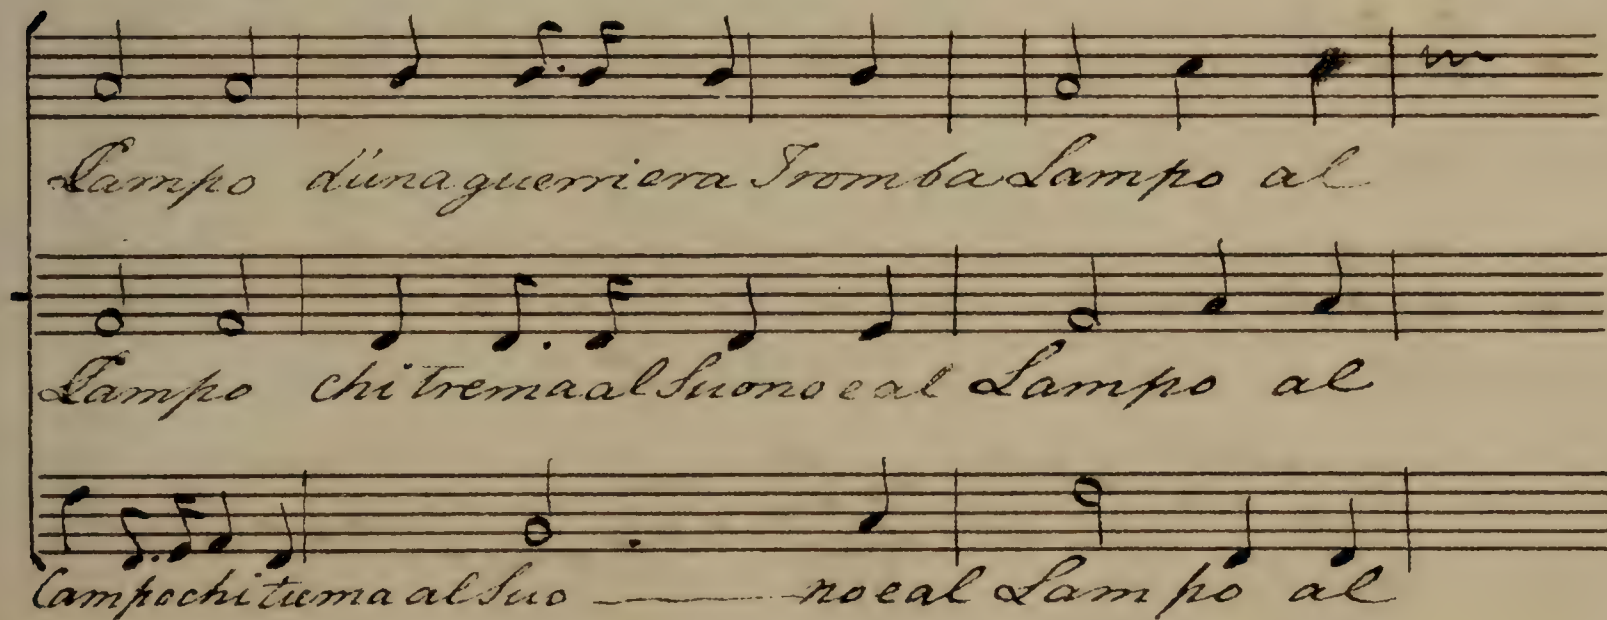 Lampo d'una guerriera Tromba Lampo al
Lampo chi trema al Suono e al Lampo al
Campo chi tuma al Suo no e al Lampo al